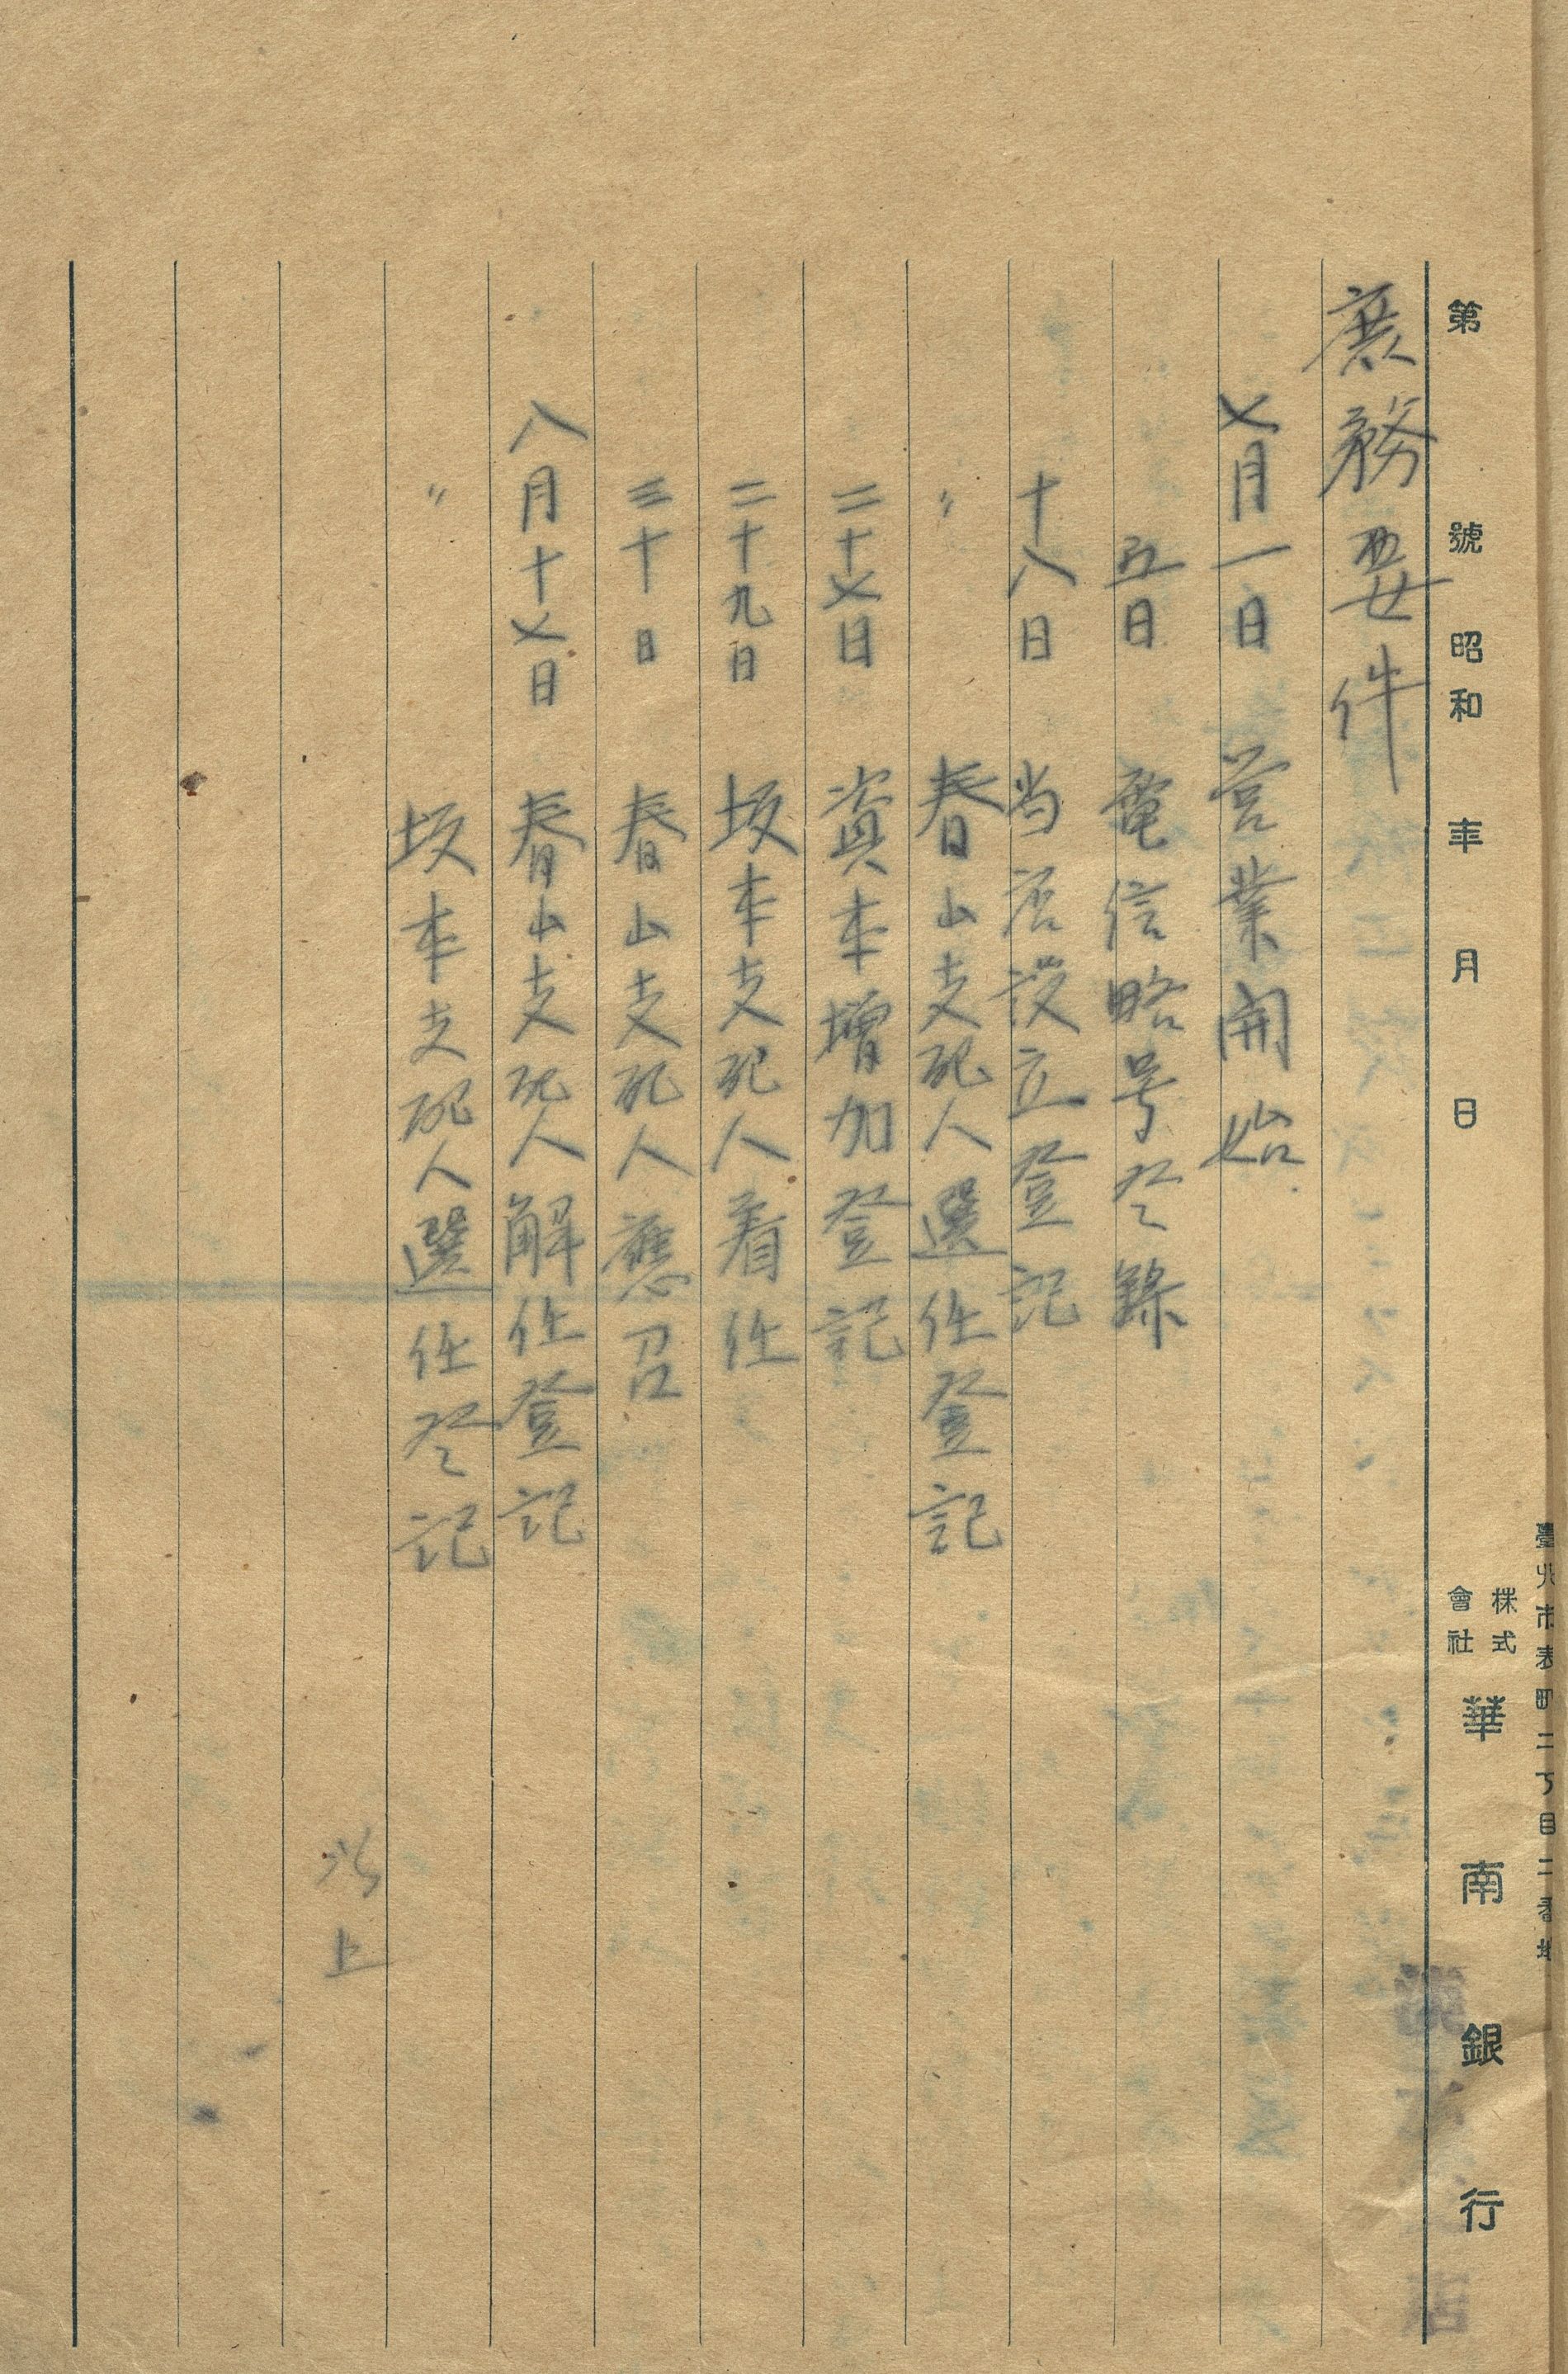 臺北市表町二丁目二番地
株式會社 華南銀行
第 號 昭和 年 月 日
庶務要件
七月一日 営業開始
五日 電信略号登録
十八日 当店設立登記
〃 春山支配人選任登記
二十七日 資本増加登記
二十九日 坂本支配人着任
三十日 春山支配人應召
八月十七日 春山支配人解任登記
〃 坂本支配人選任登記
以上